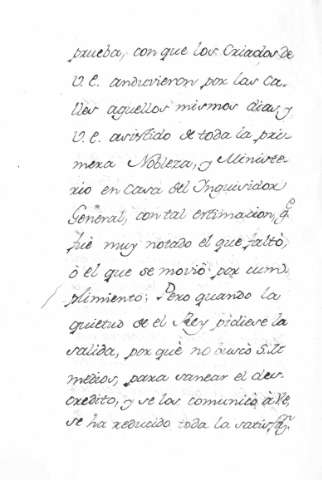 prueba, con que los Criados de
V. E. anduvieron por las Ca-
lles aquellos mismos dias, y
V. E. asistido de toda la pri-
mera Nobleza, y Ministe-
rio en casa del Inquisidor
General, con tal estimacion, q.e
fué muy notado el que faltó,
ò el que se movió por cum-
plimiento; Pero quando la
quietud de el Rey pidiese la
salida, por què no buscò S. It
medios, para sanear el des-
credito, y se los comunicò à Ve,
se ha reducido toda la satisf.on